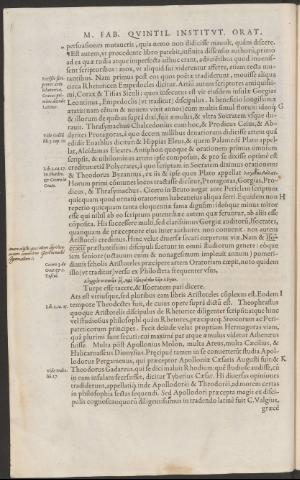 M. FAB. QVINTIL. INSTITVT. ORAT.
persuasiones mutaueris, quia nemo non didicisse mauult, quàm discere.
Est autem, vt procedente libro patebit, infinita dissensio authorũ, primò
ad ea quæ rudia atque imperfecta adhuc erant, adijcientibus quod inuenis-
sent scriptoribus: mox, vt aliquid sui viderentur afferre, etiam recta mu-
tantibus. Nam primus post eos quos poëtæ tradiderunt, mouisse aliqua
circa Rhetoricen Empedocles dicitur. Artiũ autem scriptores antiquissi-
mi, Corax & Tisias Siculi: quos insecutus est vir eiusdem insulæ Gorgias
Leontinus, Empedoclis (vt traditur) discipulus. Is beneficio longissimæ
ætatis (nam cẽtum & nouem vixit annos) cum multis simul floruit: ideoq́;
& illorum de quibus supra dixi, fuit æmulus, & vltra Socratem vsque du-
rauit. Thrasymachus Chalcedonius cum hoc, & Prodicus Ceius, & Ab-
derites Protagoras, à quo decem millibus denariorum didicisse artem quã
edidit Euathlus dicitur: & Hippias Eleus, & quem Palamedẽ Plato appel-
lat, Alcidamas Eleates. Antiphon quoque & orationem primus omnium
scripsit, & nihilominus artem ipse composuit, & pro se dixisse optimè est
creditus: etiã Polycrates, à quo scriptam in Socratem diximus orationem:
& Theodorus Byzantius, ex iis & ipse quos Plato appellat
Horum primi cõmunes locos tractasse dicũtur, Protagoras, Gorgias, Pro-
dicus, & Thrasymachus. Cicero in Bruto negat ante Periclem scriptum
quicquam quod ornatũ oratorium habeat: eius aliqua ferri. Equidem non H
reperio quicquam tanta eloquentiæ fama dignum: ideoque minùs miror
esse qui nihil ab eo scriptum putent: hæc autem quæ feruntur, ab aliis esse
cõposita. His successere multi, sed clarissimus Gorgiæ auditorũ, Isocrates,
quanquam de præceptore eius inter authores non conuenit: nos autem
Aristoteli credimus. Hinc velut diuersæ secari cœperunt viæ. Nam & Iso-
cratis præstantissimi discipuli fuerunt in omni studiorum genere: eoque
iam seniore (octauum enim & nonagesimum impleuit annum) pomeri-
dianis scholis Aristoteles præcipere artem Oratoriam cœpit, noto quidem
illo (vt traditur) versu ex Philocteta frequenter vsus,
Turpe esse tacere, & Isocratem pati dicere.
Ars est vtriusque, sed pluribus eam libris Aristoteles cõplexus est. Eodem I
tempore Theodectes fuit, de cuius opere supra dictũ est. Theophrastus
quoque Aristotelis discipulus de Rhetorice diligenter scripsit: atque hinc
vel studiosius philosophi quàm Rhetores, præcipuéq; Stoicorum ac Peri-
pateticorum principes. Fecit deinde velut propriam Hermagoras viam,
quã plurimi sunt secuti: cui maximè par atque æmulus videtur Athenæus
fuisse. Multa pòst Apollonius Molon, multa Areus, multa Cæcilius, &
Halicarnasseus Dionysius. Præcipuè tamen in se conuerterũt studia Apol-
lodorus Pergamenus, qui præceptor Apolloniæ Cæsaris Augusti fuit: &
Theodorus Gadareus, qui se dici maluit Rhodium: quẽ studiosè audisse, cũ K
in eam insulam secessisset, dicitur Tyberius Cæsar. Hi diuersas opiniones
tradiderunt, appellatiq́; inde Apollodorei & Theodorei, ad morem certas
in philosophia sectas sequendi. Sed Apollodori præcepta magis ex disci-
pulis cognoscas: quorũ diligentissimus in tradendo latinè fuit C. Valgius,
græcè